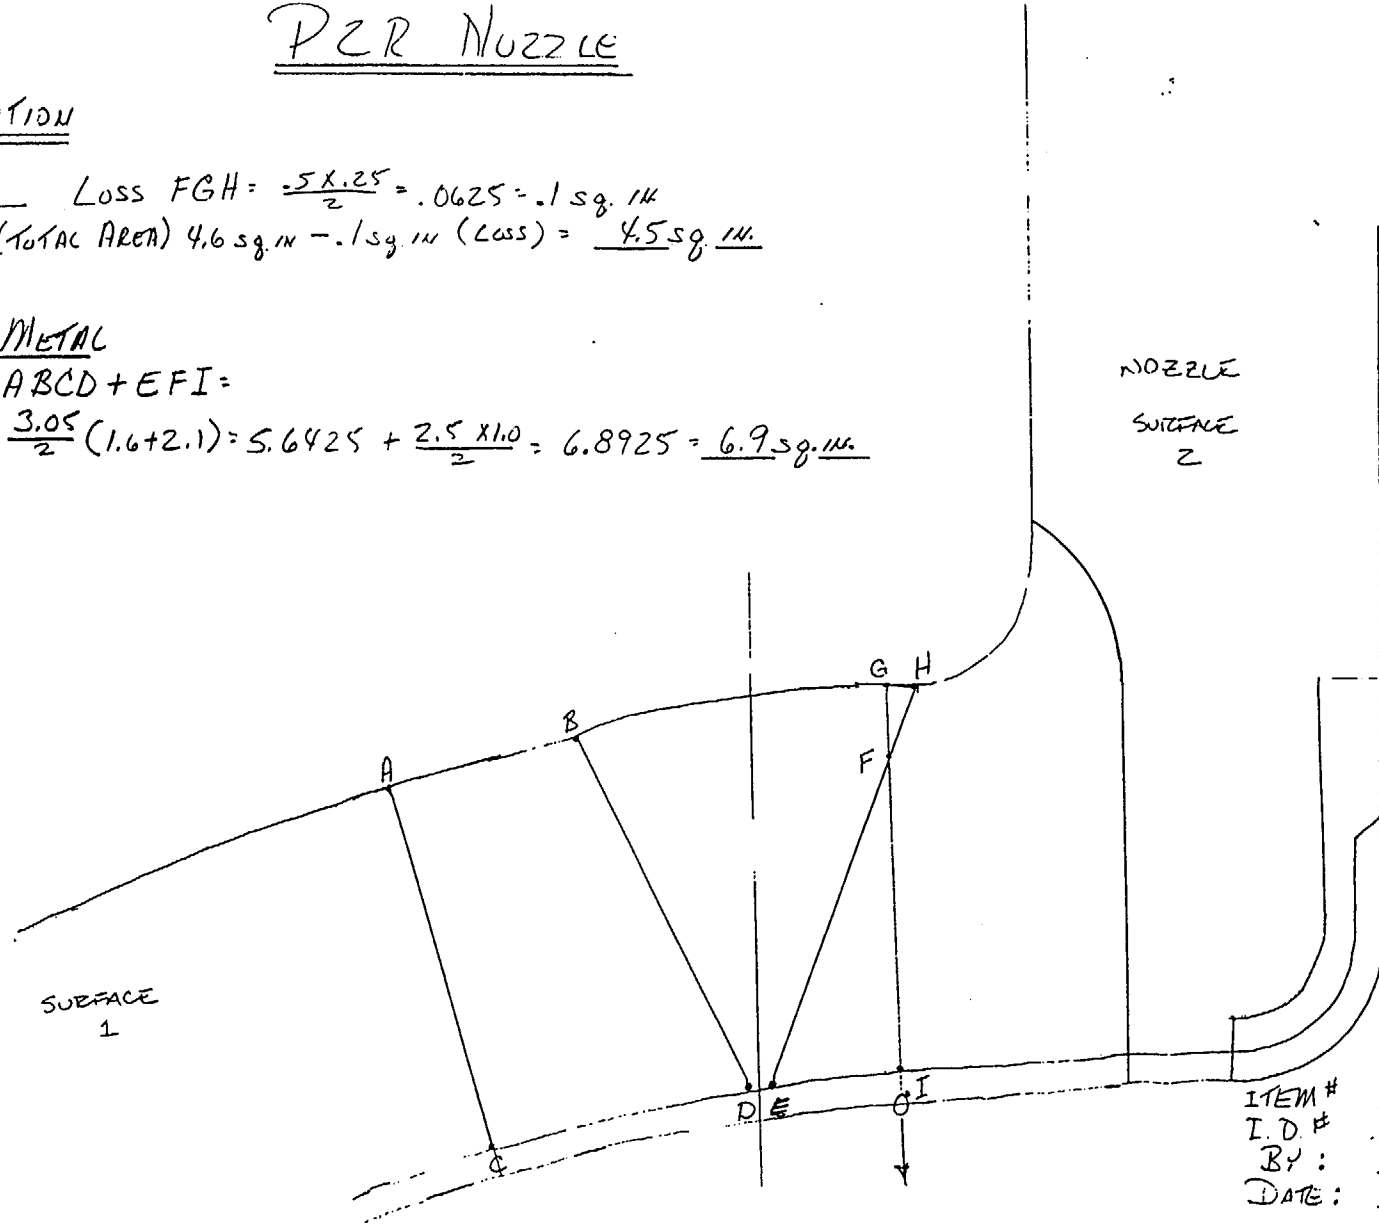 PZR NOZZLE
TION
LOSS FGH = .5 X .25 / 2 = .0625 = .1 sq. IN
(TOTAL AREA) 4.6 sq. IN - .1 sq IN (LOSS) = 4.5 sq. IN.
METAL
ABCD + EFI =
3.05 / 2 (1.6+2.1) = 5.6425 + 2.5 X 1.0 / 2 = 6.8925 = 6.9 sq. IN.
NOZZLE
SURFACE
2
G H
B
F
A
SURFACE
1
D E I
O
C
ITEM #
I.D. #
BY:
DATE: